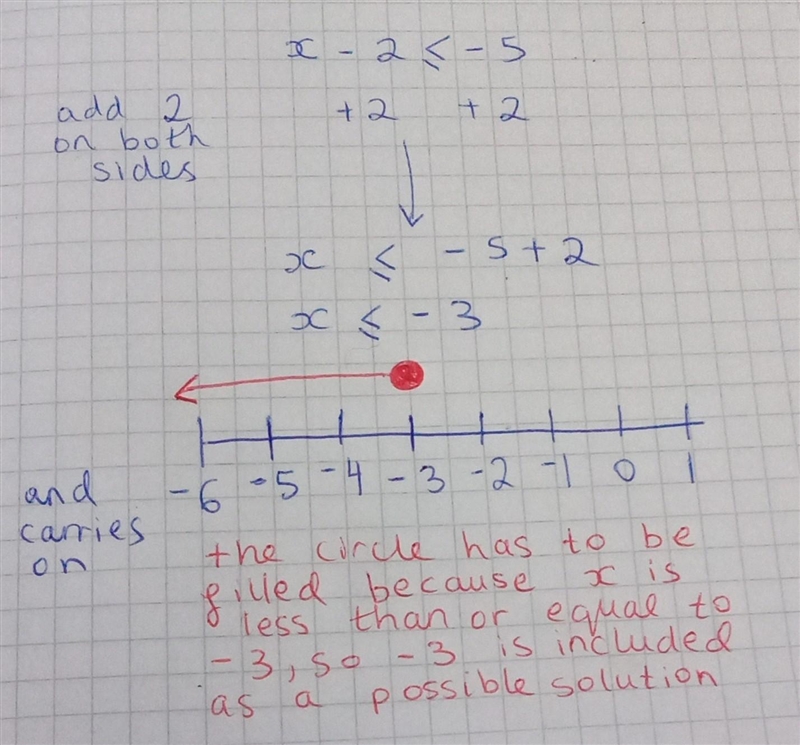 x - 2 ⩽ - 5
add 2 +2 +2
on both
sides
x ⩽ - 5 + 2
x ⩽ - 3
-6 -5 -4 -3 -2 -1 0 1
and
carries
on
the circle has to be
filled because x is
less than or equal to
-3, so -3 is included
as a possible solution